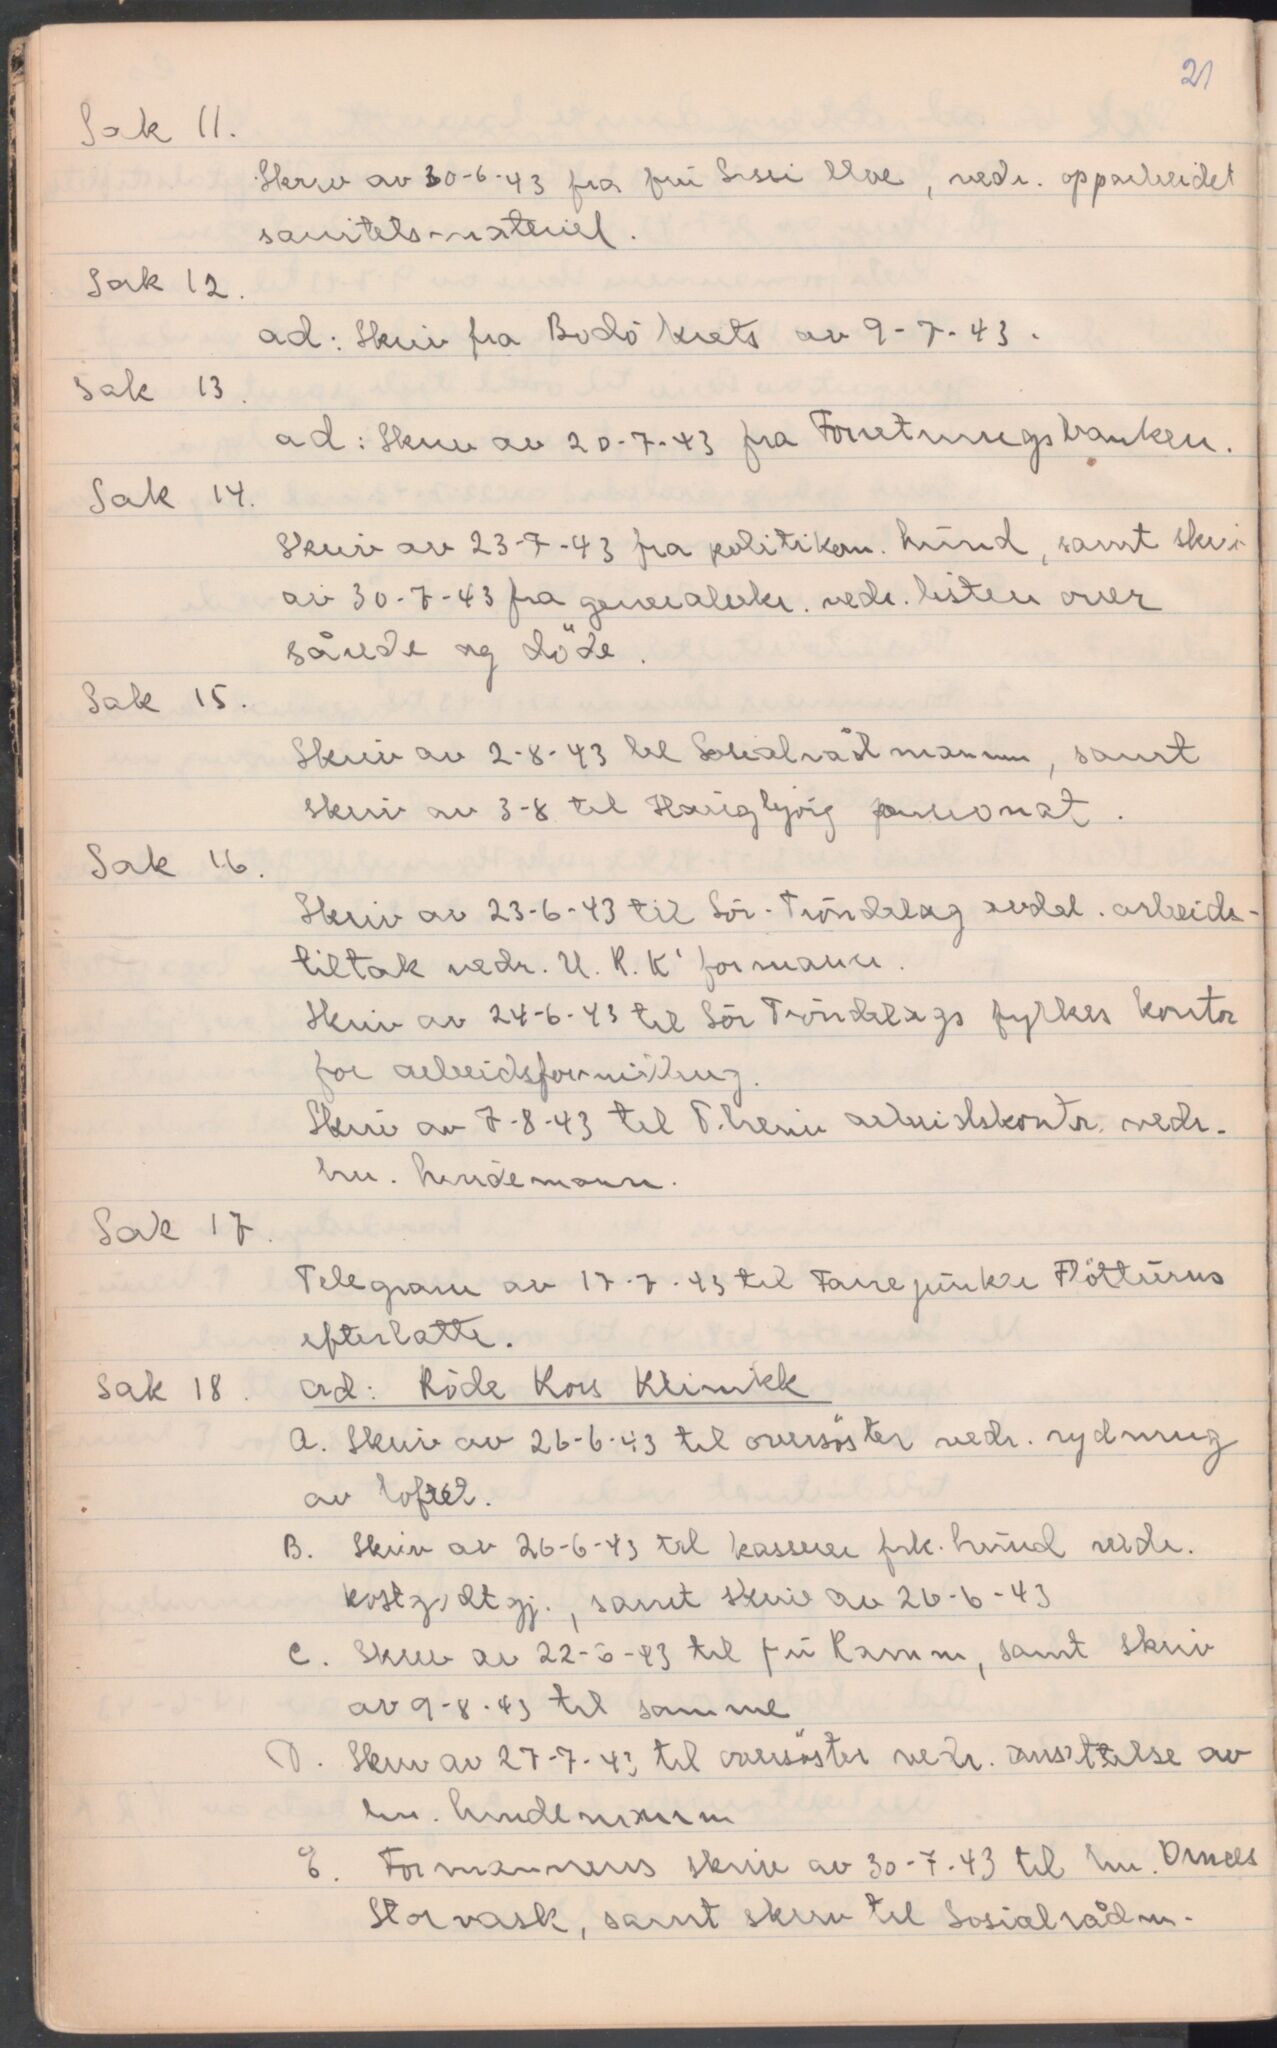 21
Sak 11.
Skriv av 30-6-43 fra frü Sissi Moe, vedr. opparbeidet
sanitets-materiel.
Sak 12.
ad: Skriv fra Bodö krets av 9-7-43.
Sak 13.
ad: Skriv av 20-7-43 fra Forretningsbanken.
Sak 14.
Skriv av 23-7-43 fra politikam. Lünd, samt skriv
av 30-7-43 fra generalsekr. vedr. listen over
sårede og döde.
Sak 15.
Skriv av 2-8-43 til Sosialrådmannen, samt
skriv av 3-8 til Haügbjörg pensionat.
Sak 16.
Skriv av 23-6-43 til Sör-Tröndelag avdel. arbeids-
tiltak vedr. U.R.K' formann.
Skriv av 24-6-43 til Sör Tröndelags fylkes kontor
for arbeidsformidling.
Skriv av 7-8-43 til T.heim arbeidskontor vedr.
hr. Lindemann.
Sak 17.
Telegram av 17-7-43 til Flötturus
efterlatte.
Sak 18. ad: Röde Kors Klinikk
A. Skriv av 26-6-43 til oversöster vedr. rydning
av loftet.
B. Skriv av 26-6-43 til kasserer frk. Lünd vedr.
kostgodtgj., samt skriv av 26-6-43
C. Skriv av 22-6-43 til frü Ramm, samt skriv
av 9-8-43 til samme
D. Skriv av 27-7-43 til oversöster vedr. ansettelse av
hr. Lindemann
E. Formannens skriv av 30-7-43 til hr.
Storvask, samt skriv til Sosialrådm.